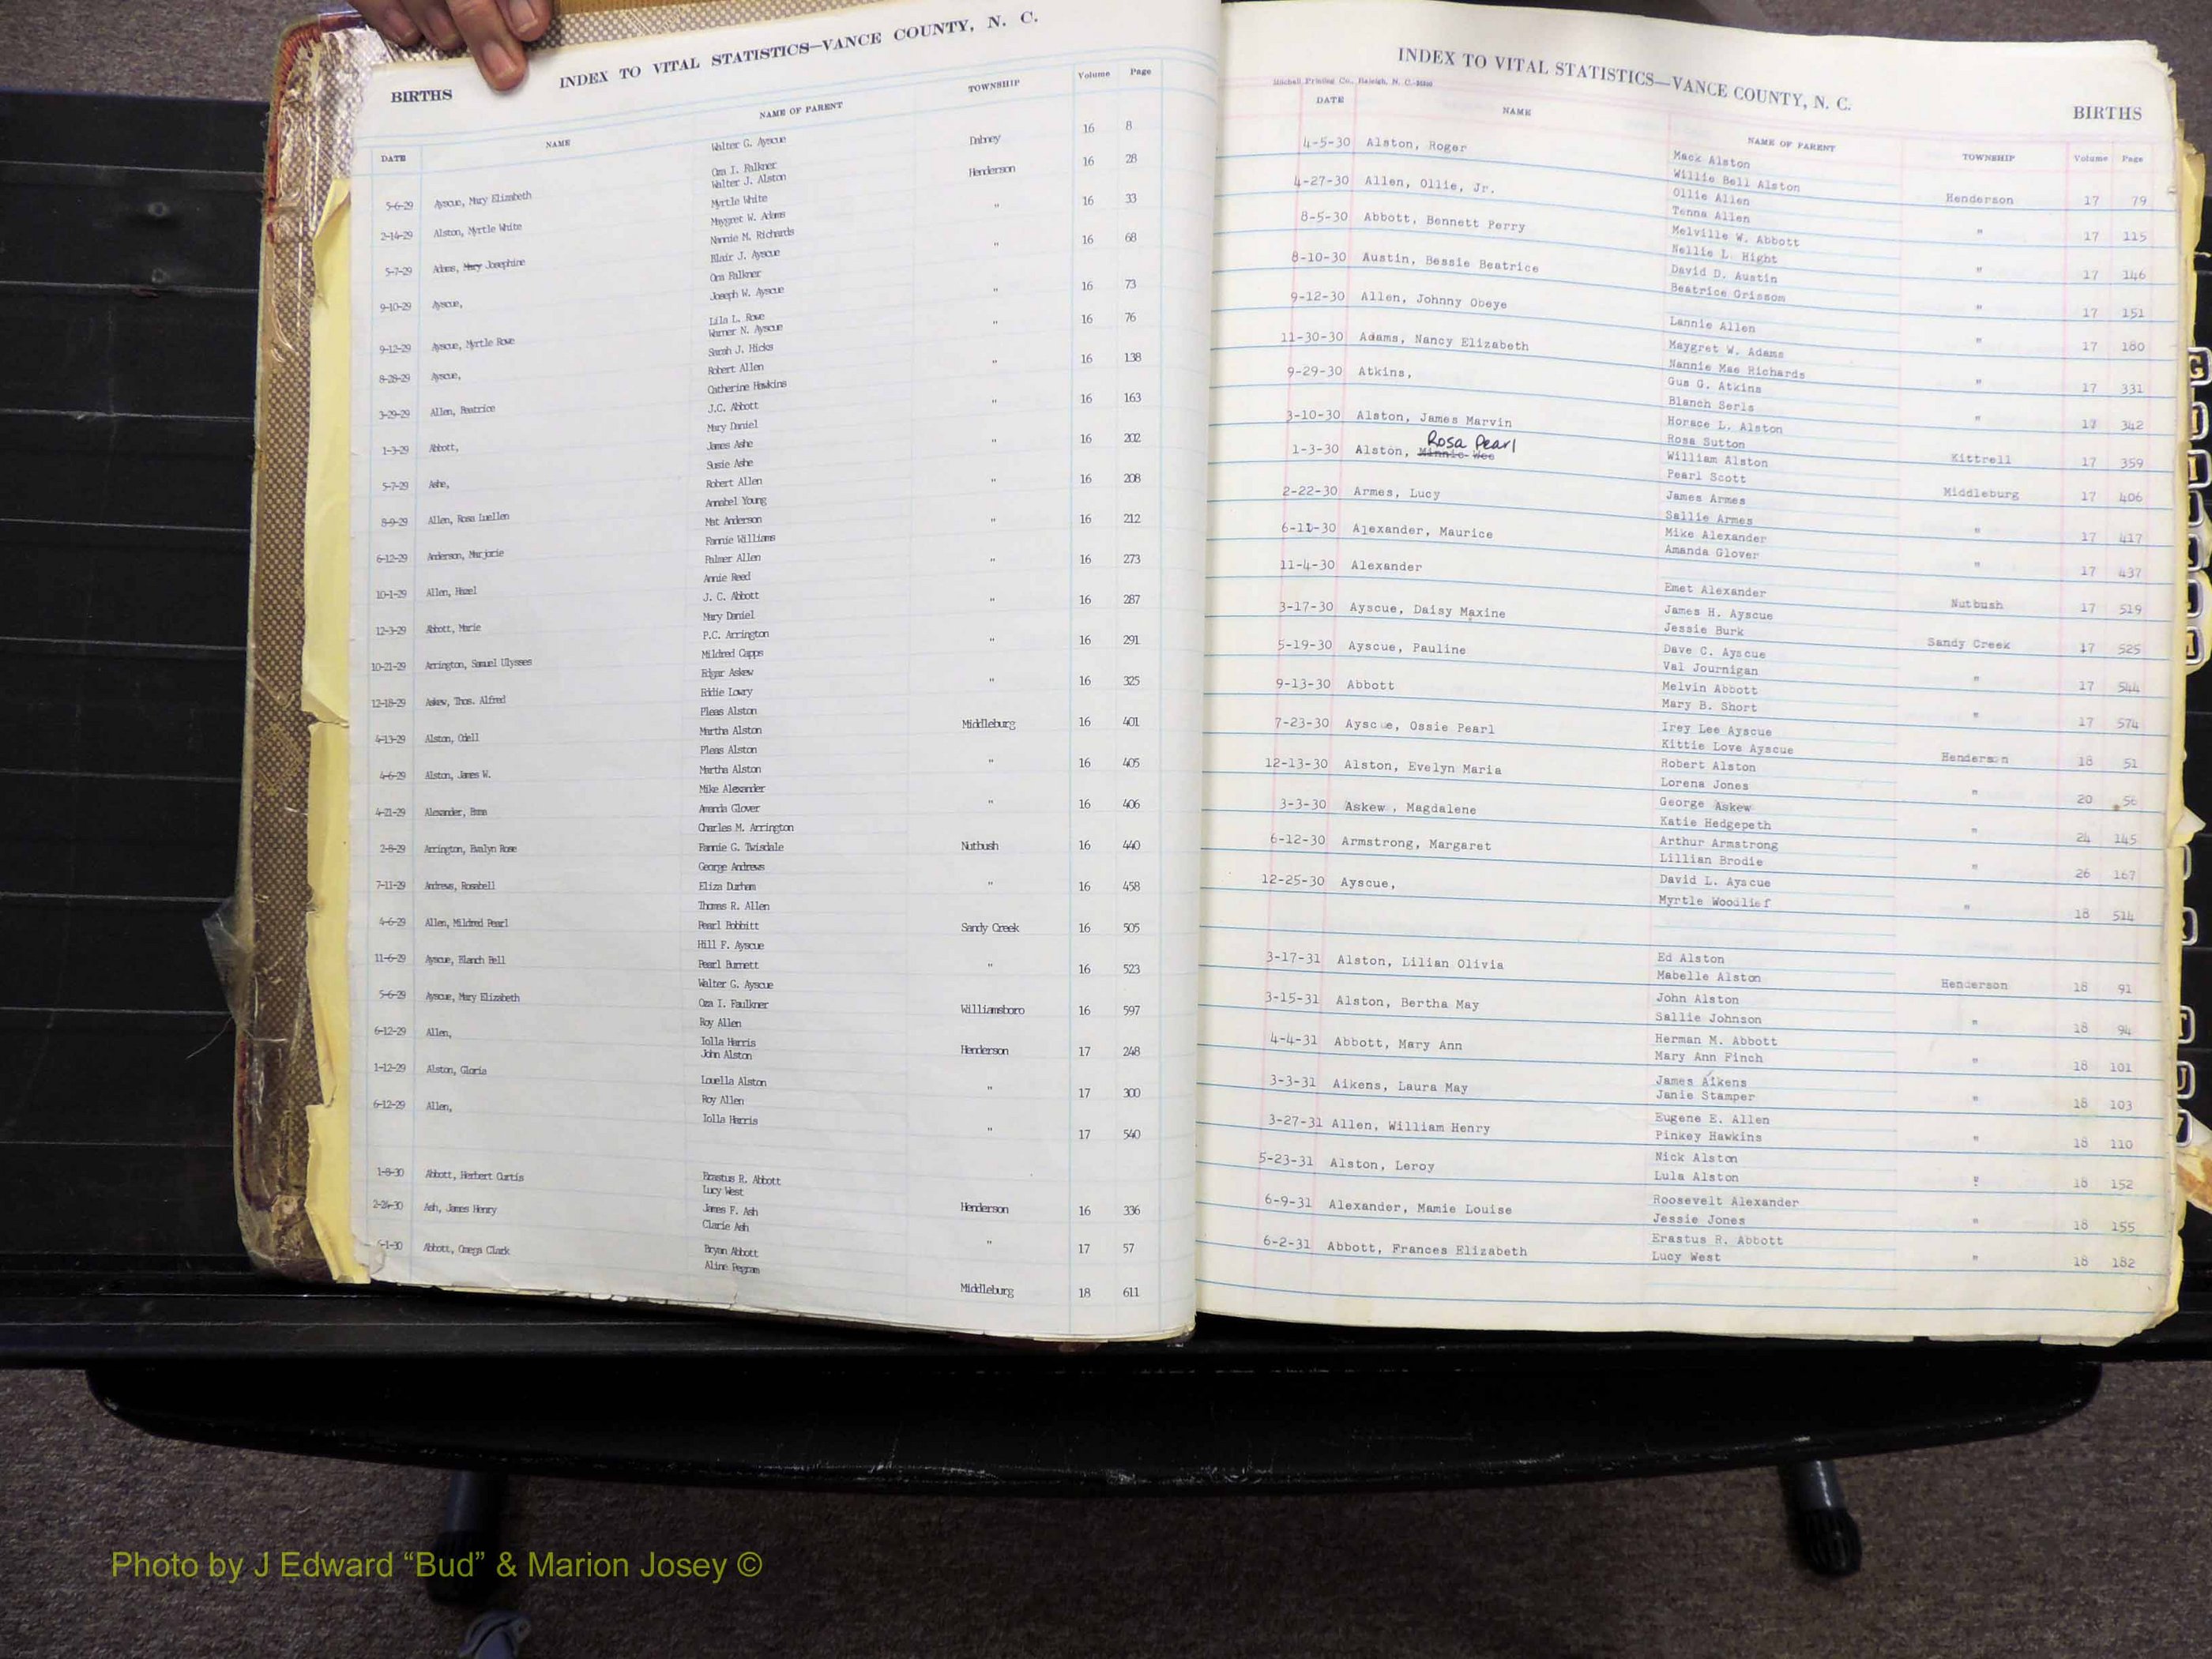 BIRTHS INDEX TO VITAL STATISTICS—VANCE COUNTY, N. C.
DATE NAME NAME OF PARENT TOWNSHIP Volume Page
5-6-29 Ayscue, Mary Elizabeth Walter G. Ayscue Dabney 16 8
Oza I. Falkner
2-14-29 Alston, Myrtle White Walter J. Alston Henderson 16 28
Myrtle White
5-7-29 Adams, Mary Josephine Maygret W. Adams " 16 33
Nannie M. Richards
9-10-29 Ayscue, Blair J. Ayscue " 16 68
Ora Falkner
9-12-29 Ayscue, Myrtle Rowe Joseph W. Ayscue " 16 73
Lila L. Rowe
8-28-29 Ayscue, Warner N. Ayscue " 16 76
Sarah J. Hicks
3-29-29 Allen, Beatrice Robert Allen " 16 138
Catherine Hawkins
1-3-29 Abbott, J.C. Abbott " 16 163
Mary Daniel
5-7-29 Ashe, James Ashe " 16 202
Susie Ashe
8-9-29 Allen, Rosa Luellen Robert Allen " 16 208
Annabel Young
6-12-29 Anderson, Marjorie Mat Anderson " 16 212
Fannie Williams
10-1-29 Allen, Hazel Palmer Allen " 16 273
Annie Reed
12-3-29 Abbott, Marie J. C. Abbott " 16 287
Mary Daniel
10-21-29 Arrington, Samuel Ulysses P.C. Arrington " 16 291
Mildred Capps
12-18-29 Askew, Thos. Alfred Edgar Askew " 16 325
Eddie Lowry
4-13-29 Alston, Odell Pleas Alston Middleburg 16 401
Martha Alston
4-6-29 Alston, James W. Pleas Alston " 16 405
Martha Alston
4-21-29 Alexander, Emma Mike Alexander " 16 406
Amanda Glover
2-8-29 Arrington, Evalyn Rose Charles M. Arrington Nutbush 16 440
Fannie G. Twisdale
7-11-29 Andrews, Rosabell George Andrews " 16 458
Eliza Durham
4-6-29 Allen, Mildred Pearl Thomas R. Allen Sandy Creek 16 505
Pearl Bobbitt
11-6-29 Ayscue, Blanch Bell Hill F. Ayscue " 16 523
Pearl Burnett
5-6-29 Ayscue, Mary Elizabeth Walter G. Ayscue Williamsboro 16 597
Oza I. Faulkner
6-12-29 Allen, Roy Allen Henderson 17 248
Iolla Harris
1-12-29 Alston, Gloria John Alston " 17 300
Louella Alston
6-12-29 Allen, Roy Allen " 17 540
Iolla Harris
1-8-30 Abbott, Herbert Curtis Erastus R. Abbott Henderson 16 336
Lucy West
2-24-30 Ash, James Henry James F. Ash " 17 57
Clarie Ash
-1-30 Abbott, Omega Clark Bryan Abbott Middleburg 18 611
Aline Pegram
INDEX TO VITAL STATISTICS—VANCE COUNTY, N. C. BIRTHS
Mitchell Printing Co., Raleigh, N. C.
DATE NAME NAME OF PARENT TOWNSHIP Volume Page
4-5-30 Alston, Roger Mack Alston Henderson 17 79
Willie Bell Alston
4-27-30 Allen, Ollie, Jr. Ollie Allen " 17 115
Tenna Allen
8-5-30 Abbott, Bennett Perry Melville W. Abbott " 17 146
Nellie L. Hight
8-10-30 Austin, Bessie Beatrice David D. Austin " 17 151
Beatrice Grissom
9-12-30 Allen, Johnny Obeye Lannie Allen " 17 180
11-30-30 Adams, Nancy Elizabeth Maygret W. Adams " 17 331
Nannie Mae Richards
9-29-30 Atkins, Gus G. Atkins " 17 342
Blanch Serls
3-10-30 Alston, James Marvin Horace L. Alston Kittrell 17 359
Rosa Sutton
Rosa Pearl
1-3-30 Alston, Minnie Wee William Alston Middleburg 17 406
Pearl Scott
2-22-30 Armes, Lucy James Armes " 17 417
Sallie Armes
6-11-30 Alexander, Maurice Mike Alexander " 17 437
Amanda Glover
11-4-30 Alexander Emet Alexander Nutbush 17 519
3-17-30 Ayscue, Daisy Maxine James H. Ayscue Sandy Creek 17 525
Jessie Burk
5-19-30 Ayscue, Pauline Dave C. Ayscue " 17 544
Val Journigan
9-13-30 Abbott Melvin Abbott " 17 574
Mary B. Short
7-23-30 Ayscue, Ossie Pearl Irey Lee Ayscue Henderson 18 51
Kittie Love Ayscue
12-13-30 Alston, Evelyn Maria Robert Alston " 20 56
Lorena Jones
3-3-30 Askew, Magdalene George Askew " 24 145
Katie Hedgepeth
6-12-30 Armstrong, Margaret Arthur Armstrong " 26 167
Lillian Brodie
12-25-30 Ayscue, David L. Ayscue " 18 514
Myrtle Woodlief
3-17-31 Alston, Lilian Olivia Ed Alston Henderson 18 91
Mabelle Alston
3-15-31 Alston, Bertha May John Alston " 18 94
Sallie Johnson
4-4-31 Abbott, Mary Ann Herman M. Abbott " 18 101
Mary Ann Finch
3-3-31 Aikens, Laura May James Aikens " 18 103
Janie Stamper
3-27-31 Allen, William Henry Eugene E. Allen " 18 110
Pinkey Hawkins
5-23-31 Alston, Leroy Nick Alston " 18 152
Lula Alston
6-9-31 Alexander, Mamie Louise Roosevelt Alexander " 18 155
Jessie Jones
6-2-31 Abbott, Frances Elizabeth Erastus R. Abbott " 18 182
Lucy West
G
I
Photo by J Edward “Bud” & Marion Josey ©